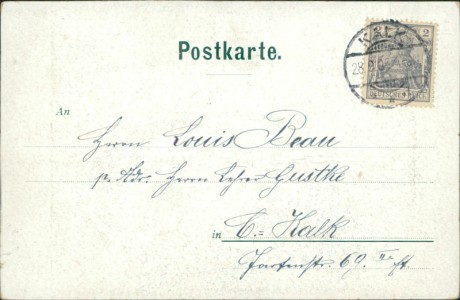 Postkarte.
KALK
2
28.
DEUTSCHES REICH
An
Herrn Louis Beau
p. Adr. Herrn Lehrer Gustke
in C.-Kalk
69. II